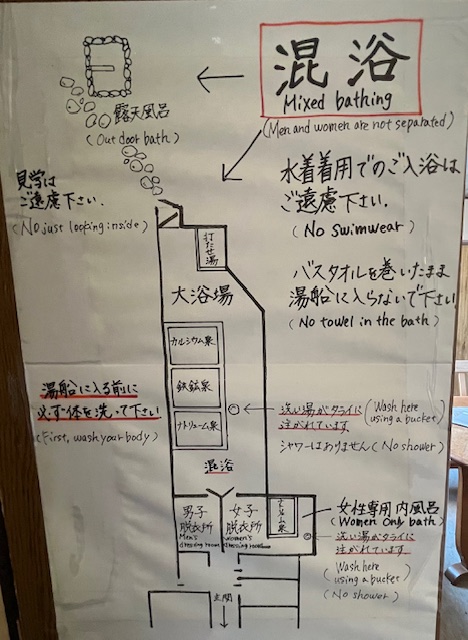 混浴
Mixed bathing
(Men and women are not separated)
露天風呂
(Out door bath)
水着着用でのご入浴は
ご遠慮下さい.
(No swimwear)
見学は
ご遠慮下さい.
(No just looking inside)
打たせ湯
大浴場
バスタオルを巻いたまま
湯船に入らないで下さい
(No towel in the bath)
カルシウム泉
鉄鉱泉
ナトリューム泉
湯船に入る前に
必ず体を洗って下さい
(First, wash your body)
洗い湯がタライに
注がれています
(Wash here
using a bucket)
シャワーはありません (No shower)
混浴
男子
脱衣所
Men's
dressing room
女子
脱衣所
women's
dressing room
女性専用内風呂
(Women Only bath)
洗い湯がタライに
注がれています.
(Wash here
using a bucket)
(No shower)
玄関